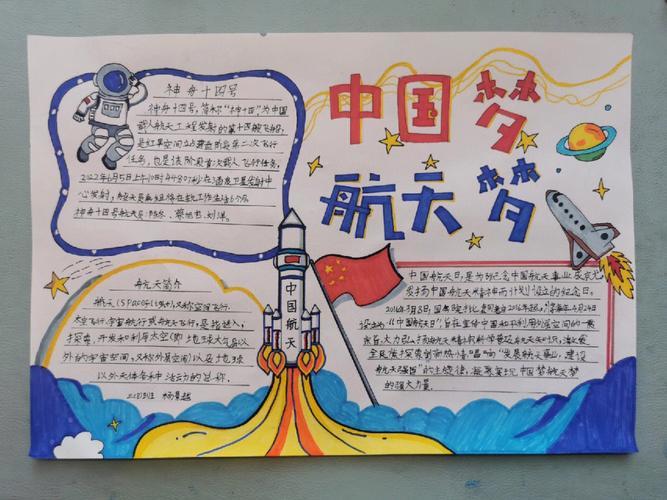 中国梦
航天梦
神舟十四号
神舟十四号,简称“神十四”为中国
载人航天工程发射的第十四艘飞船,
是红事空间站建造阶段第二次飞行
任务,也是该阶段首次载人飞行任务,
2022年6月5日上午10时44分07秒在酒泉卫星发射中
心发射,航天员乘组将在轨工作生活6个月
神舟十四号航天员:陈冬、蔡旭哲、刘洋。
航天简介
航天(Spaceflight)又称空间飞行,
太空飞行,宇宙航行或航天飞行,是指进入、
探索、开发和利用太空(即地球大气层以
外的宇宙空间,又称外层空间)以及地球
以外天体各种活动的总称.
中国航天
中国航天日,是为纪念中国航天事业成就
发扬中国航天精神而计划设立的纪念日。
2016年3月8日,国务院批复同意自2016年起,将每年4月24日
设立为“中国航天日”,旨在宣传中国和平利用外层空间的一贯
宗旨,大力弘扬航天精神科学普及航天知识,激发
全民族探索创新热情“唱响“发展航天事业,建设
航天强国”的主旋律,凝聚实现中国梦航天梦
的强大力量.